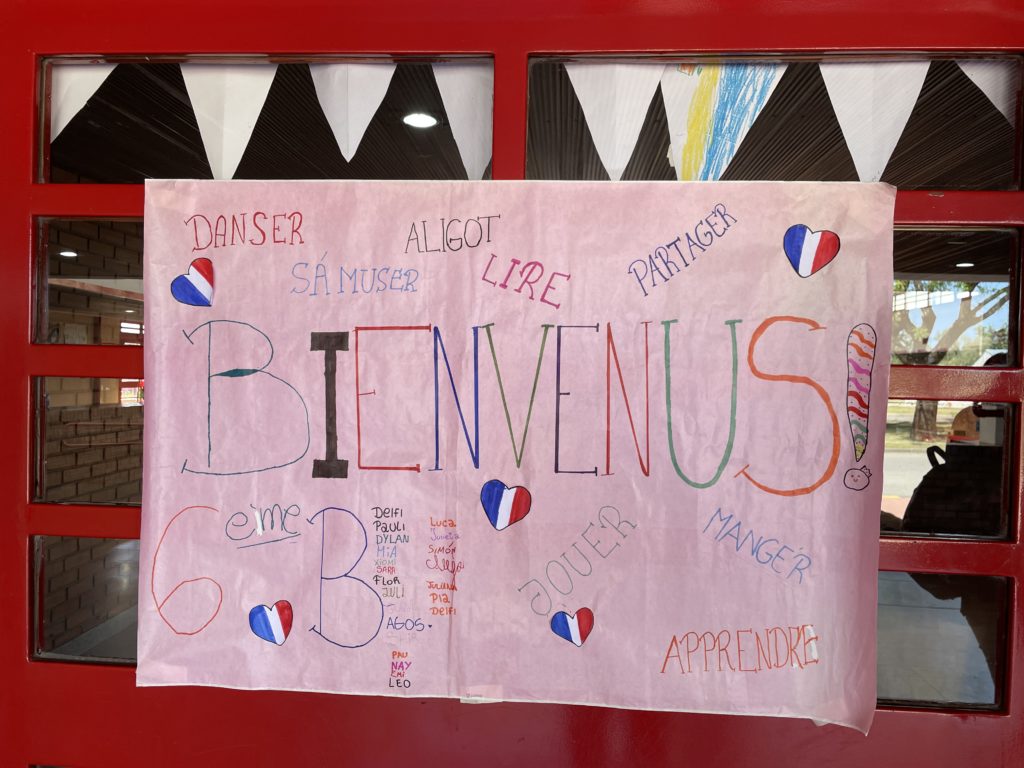 DANSER
ALIGOT
SÁ MUSER
LIRE
PARTAGER
BIENVENUS!
6 eme B
Delfi
Pauli
DYLAN
MiA
XIOMI
SARA
FLOR
JULI
AGOS.
PAU
NAY
EMi
LEO
Luca
Julieta
SiMÓN
Pia
Delfi
JOUER
MANGER
APPRENDRE